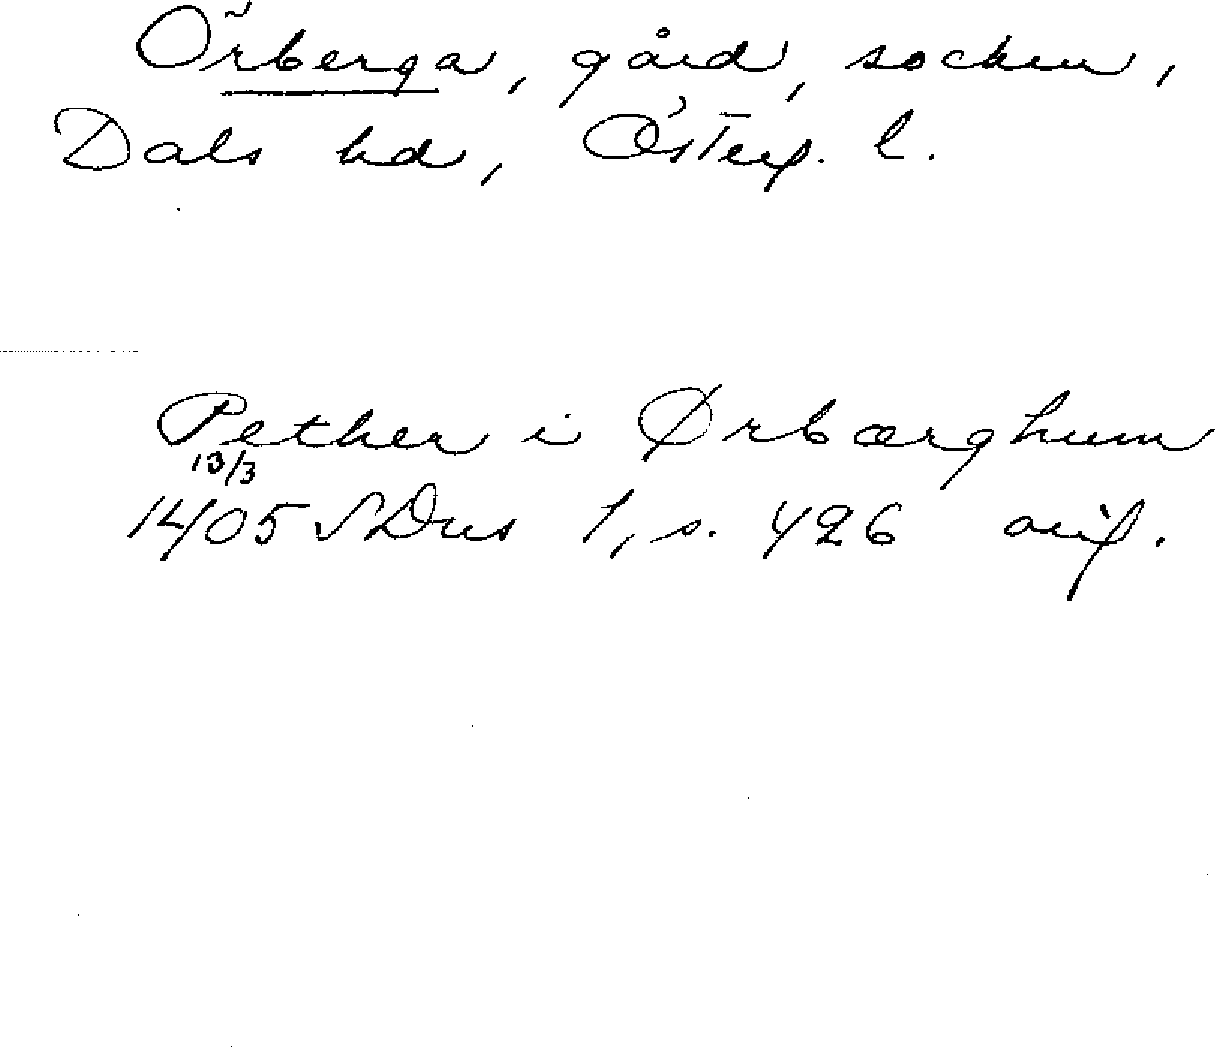 Örberga, gård, socken,
Dals hd, Österg. l.
Pether i Ørbærghum
13/3
1405 SDns 1, s. 426 orig.